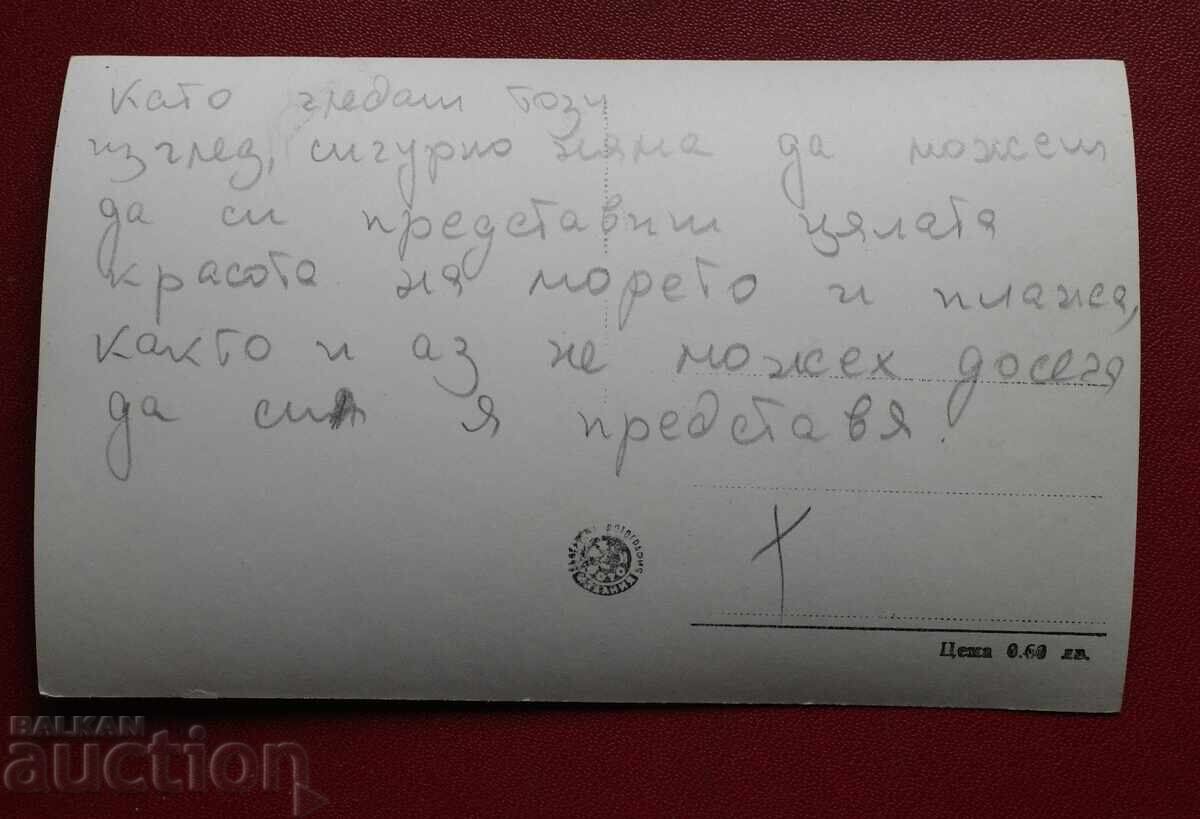 Като гледаш този
изглед, сигурно няма да можеш
да си представиш цялата
красота на морето и плажа,
както и аз не можех досега
да си я представя.
Цена 0.60 лв.
BALKAN
auction